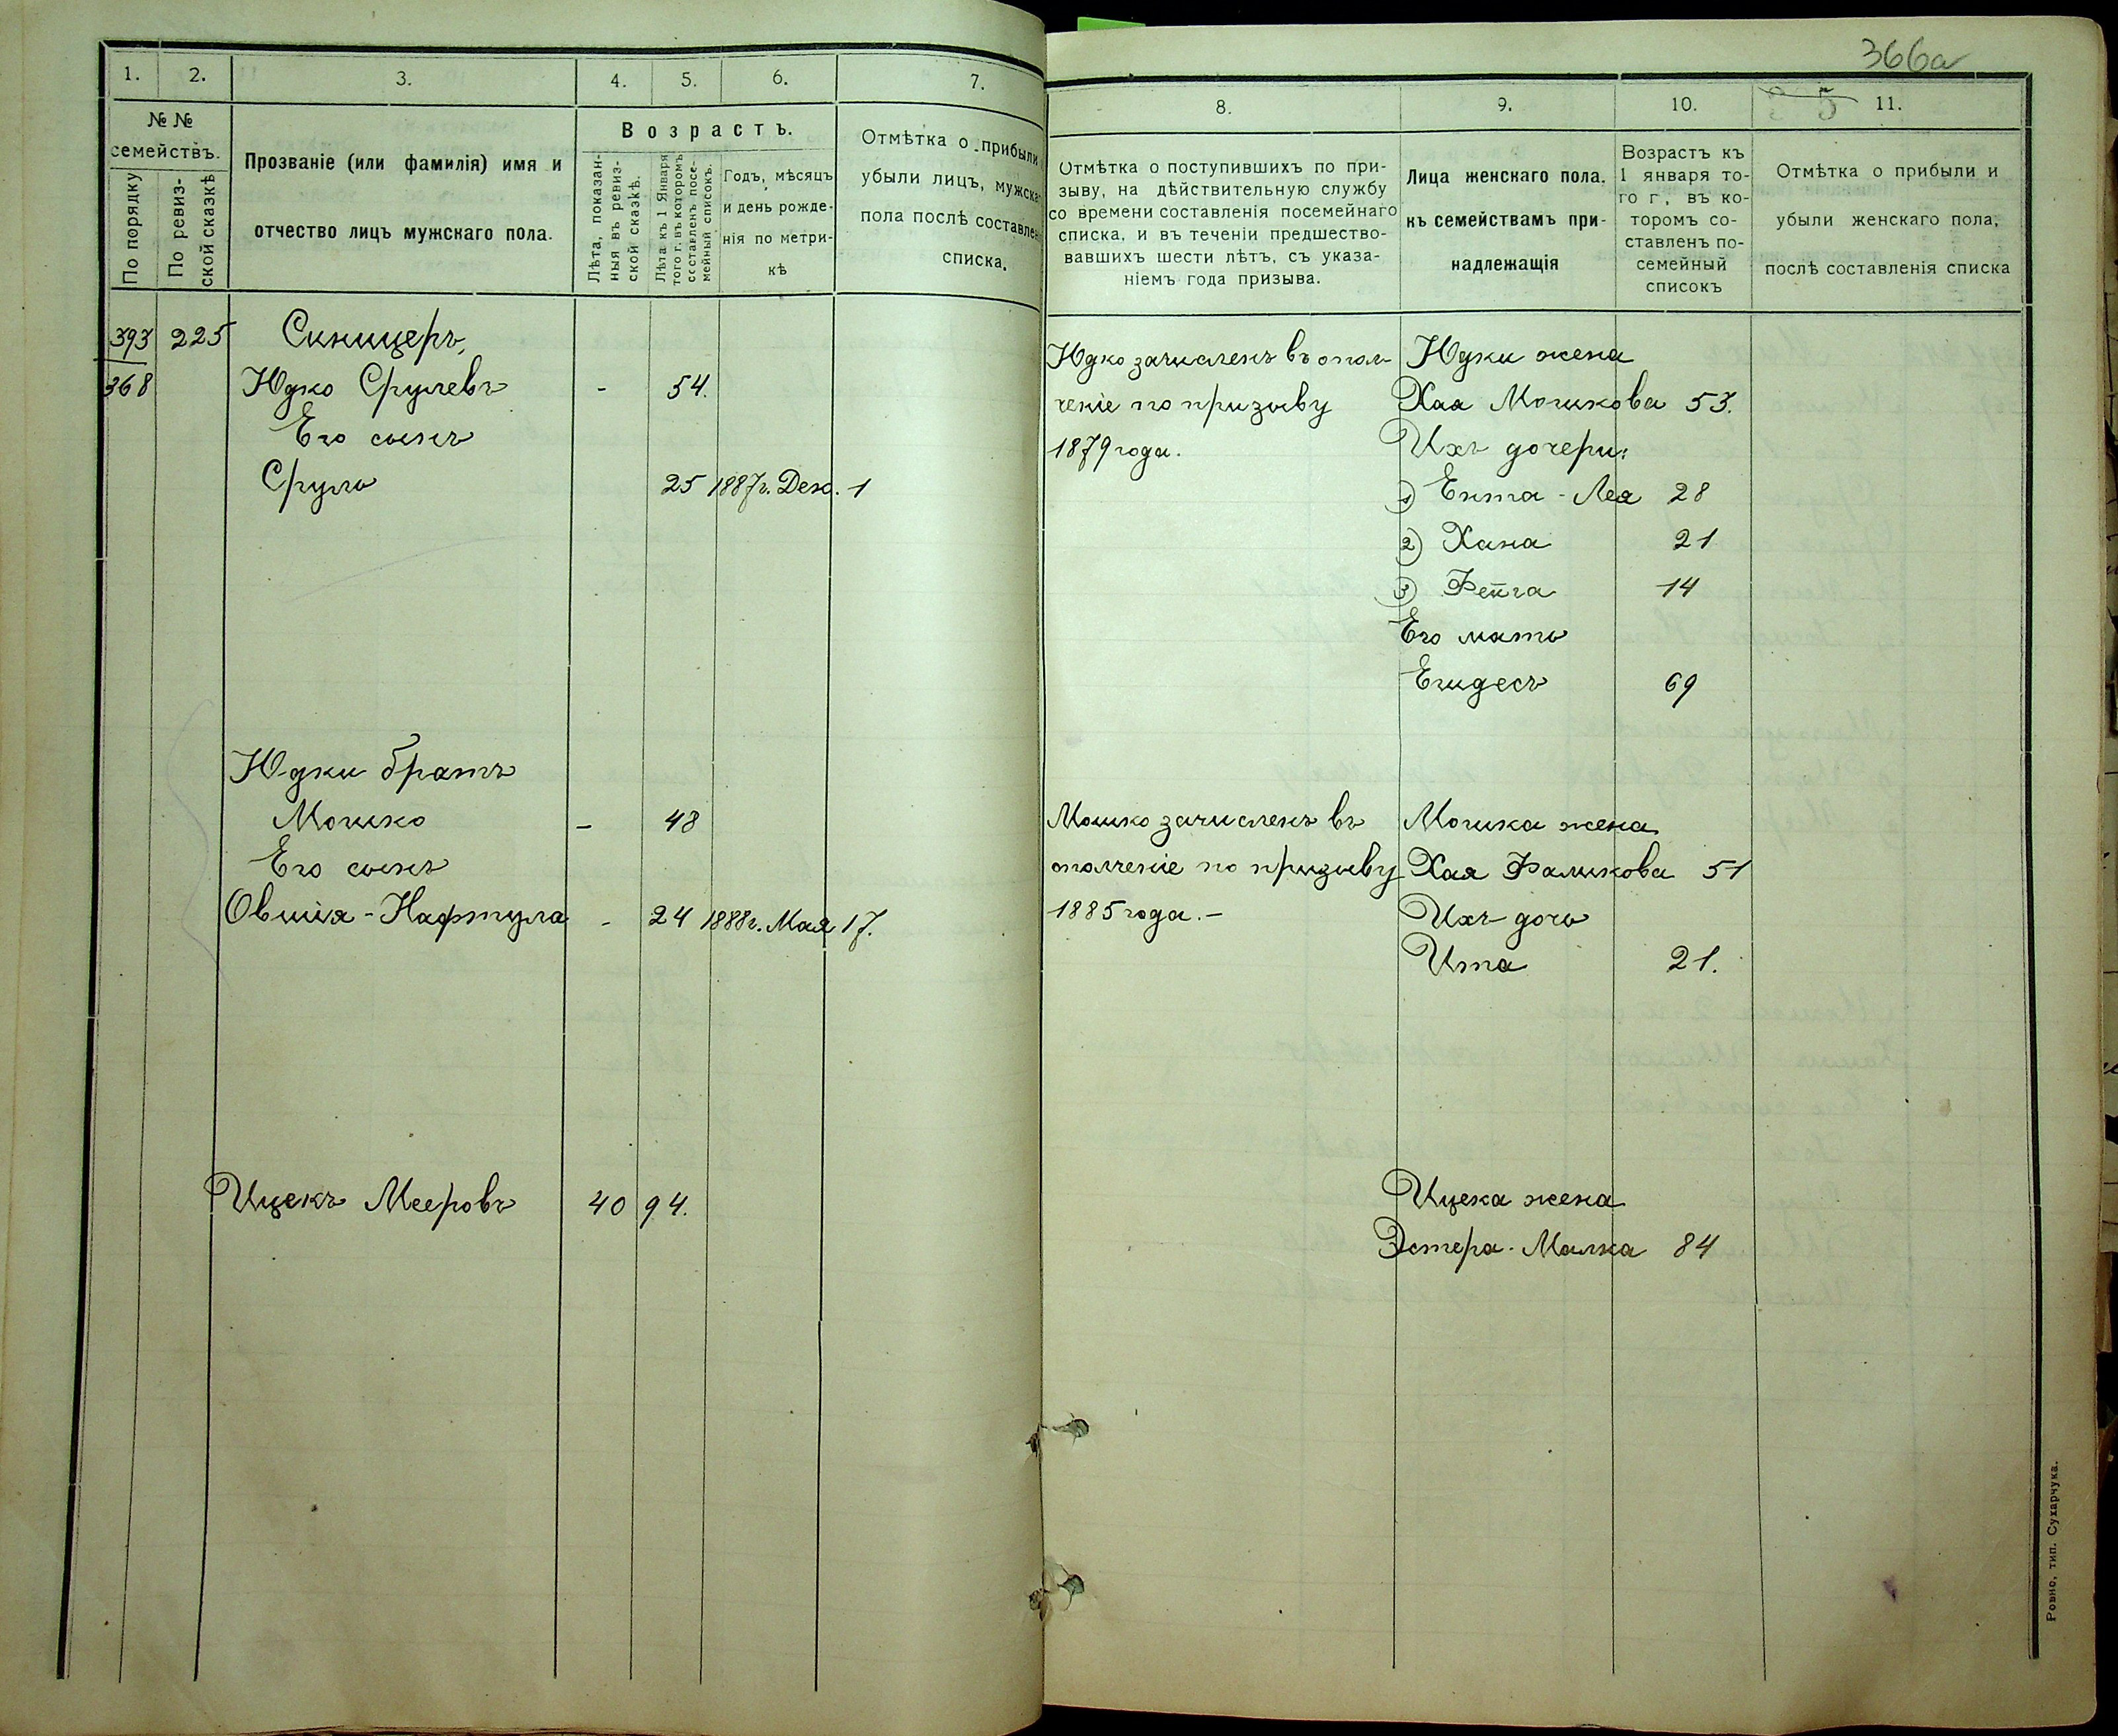 366а
1.
2.
3.
4.
5.
6.
7.
№ №
семействъ.
По порядку
По ревиз-
ской сказкѣ
Прозваніе (или фамилія) имя и
отчество лицъ мужскаго пола.
Возрастъ.
Лѣта, показан-
ныя въ ревиз-
ской сказкѣ.
Лѣта къ 1 Января
того г. въ которомъ
составленъ посе-
мейный списокъ.
Годъ, мѣсяцъ
и день рожде-
нія по метри-
кѣ
Отмѣтка о прибыли
убыли лицъ, мужска
пола послѣ составлен
списка.
393 225 Сницеръ,
368 Юдко Срулевъ - 54.
Его сынъ
Сруль 25 1887г. Дек. 1
Юдки братъ
Мошко - 48
Его сынъ
Овшія-Нафтула - 24 1888г. Мая 17.
Ицекъ Мееровъ 40 94.
8.
9.
10.
11.
Отмѣтка о поступившихъ по при-
зыву, на дѣйствительную службу
со времени составленія посемейнаго
списка, и въ теченіи предшество-
вавшихъ шести лѣтъ, съ указа-
ніемъ года призыва.
Лица женскаго пола.
къ семействамъ при-
надлежащія
Возрастъ къ
1 января то-
го г, въ ко-
торомъ со-
ставленъ по-
семейный
списокъ
Отмѣтка о прибыли и
убыли женскаго пола,
послѣ составленія списка
Юдко зачисленъ въ опол- Юдки жена
ченіе по призыву Хая Мошкова 53.
1879 года. Ихъ дочери:
1) Ента-Лея 28
2) Хана 21
3) Фейга 14
Его мать
Ешдесъ 69
Мошко зачисленъ въ Мошка жена
ополченіе по призыву Хая Фаликова 51
1885 года.- Ихъ дочь
Ита 21.
Ицека жена
Эстера-Малка 84
Ровно, тип. Сухарчука.